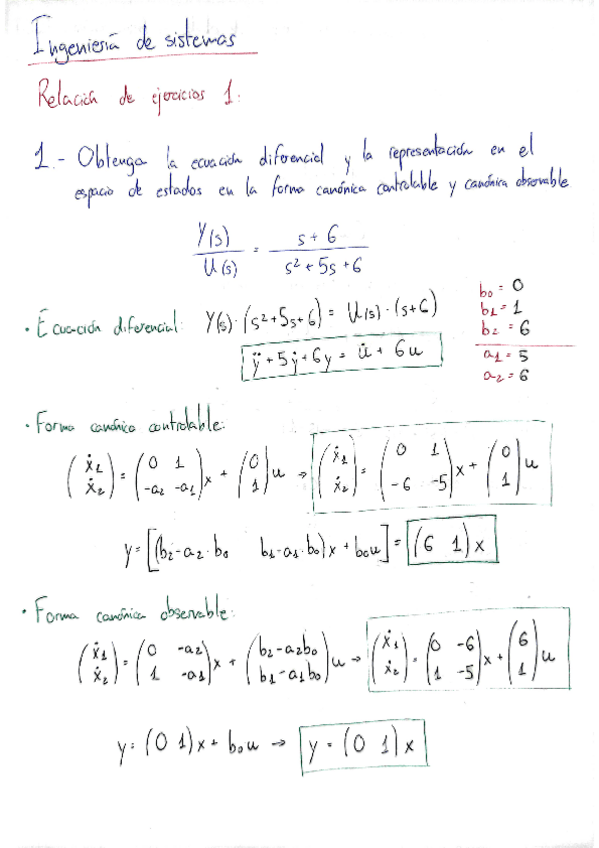 Ingeniería de sistemas
Relación de ejercicios 1.
1.- Obtenga la ecuación diferencial y la representación en el
espacio de estados en la forma canónica controlable y canónica observable
Y(s)/U(s) = (s+6)/(s²+5s+6)
· Ecuación diferencial: Y(s)·(s²+5s+6) = U(s)·(s+6)
ÿ+5ẏ+6y = u̇+6u
b₀ = 0
b₁ = 1
b₂ = 6
a₁ = 5
a₂ = 6
· Forma canónica controlable:
(ẋ₁ ; ẋ₂) = (0 1 ; -a₂ -a₁)x + (0 ; 1)u → (ẋ₁ ; ẋ₂) = (0 1 ; -6 -5)x + (0 ; 1)u
y = [(b₂-a₂·b₀ b₁-a₁·b₀)x + b₀u] = (6 1)x
· Forma canónica observable:
(ẋ₁ ; ẋ₂) = (0 -a₂ ; 1 -a₁)x + (b₂-a₂b₀ ; b₁-a₁b₀)u → (ẋ₁ ; ẋ₂) = (0 -6 ; 1 -5)x + (6 ; 1)u
y = (0 1)x + b₀u → y = (0 1)x